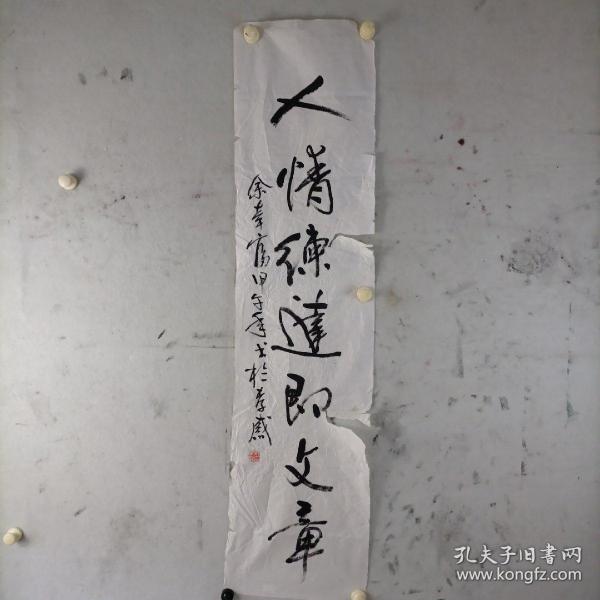 人情練達即文章
余幸富甲午年書於孝感
孔夫子旧书网
www.kongfz.com